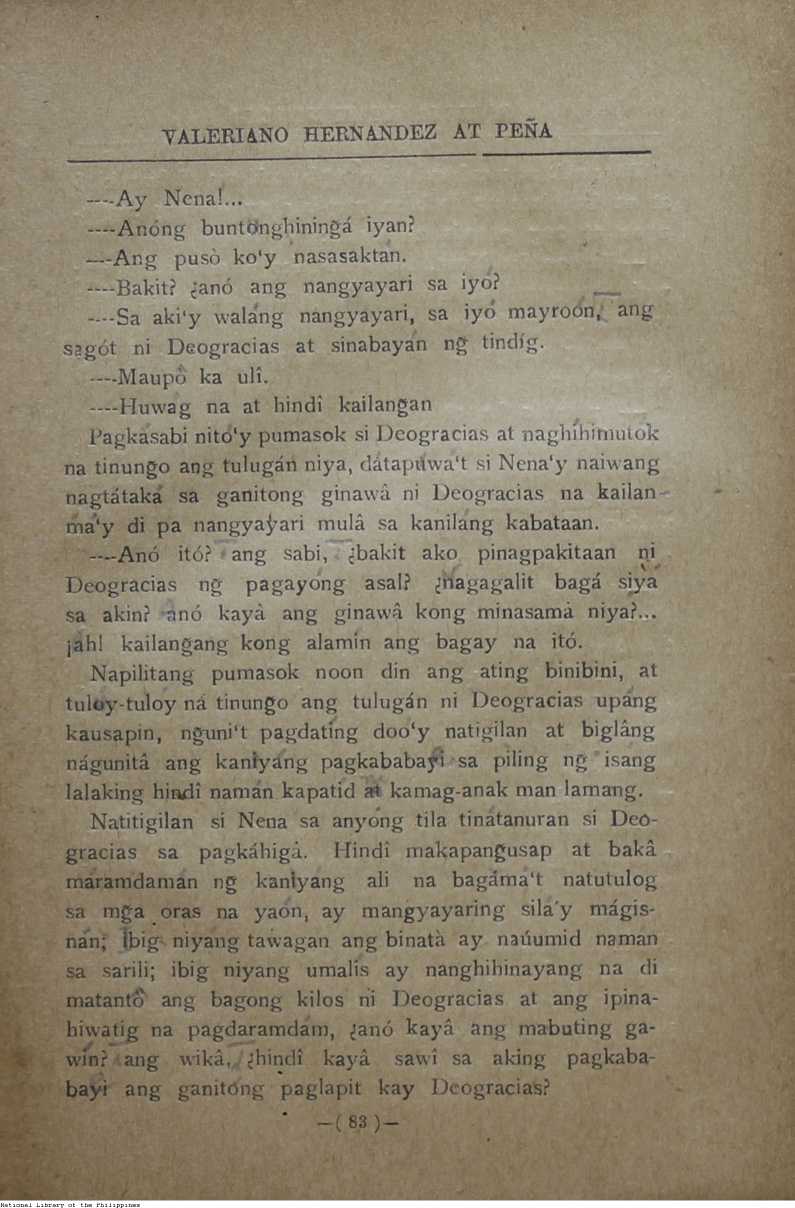 VALERIANO HERNANDEZ AT PEÑA
----Ay Nena!...
----Anóng buntónghiningá iyan?
----Ang pusò ko‘y nasasaktan.
----Bakit? ¿anó ang nangyayari sa iyó?
----Sa aki‘y waláng nangyayari, sa iyó mayroón, ang
sagót ni Deogracias at sinabayán ng̃ tindíg.
----Maupô ka ulî.
----Huwag na at hindî kailang̃an
Pagkásabi nitó‘y pumasok si Deogracias at naghíhimutok
na tinung̃o ang tulugán niya, dátapúwa‘t si Nena‘y naiwang
nagtátaká sa ganitong ginawâ ni Deogracias na kailan-
ma‘y di pa nangyayari mulâ sa kanilang kabataan.
----Anó itó? ang sabi, ¿bakit ako pinagpakitaan ni
Deogracias ng̃ pagayong asal? ¿nagagalit bagá siya
sa akin? anó kayà ang ginawâ kong minasamà niya?...
¡ah! kailang̃ang kong alamín ang bagay na itó.
Napilitang pumasok noon din ang ating binibini, at
tuloy-tuloy na tinung̃o ang tulugán ni Deogracias upáng
kausapin, ng̃uni‘t pagdatíng doo‘y natigilan at biglâng
nágunitâ ang kaniyáng pagkababayi sa piling ng̃ isang
lalaking hindî namán kapatid at kamag-anak man lamang.
Natitigilan si Nena sa anyóng tila tinátanuran si Deo-
gracias sa pagkáhigà. Hindî makapang̃usap at bakâ
máramdamán ng̃ kaniyang ali na bagáma‘t natutulog
sa mg̃a oras na yaón, ay mangyayaring silá‘y mágis-
nán; ibig niyáng tawagan ang binatà ay naúumid naman
sa sarili; ibig niyang umalis ay nanghihinayang na di
matantô ang bagong kilos ni Deogracias at ang ipina-
hiwatig na pagdaramdám, ¿anó kayâ ang mabuting ga-
win? ang wikâ, ¿hindî kayâ sawî sa aking pagkaba-
bayi ang ganitóng paglapit kay Deogracias?
—( 83 )—
National Library of the Philippines